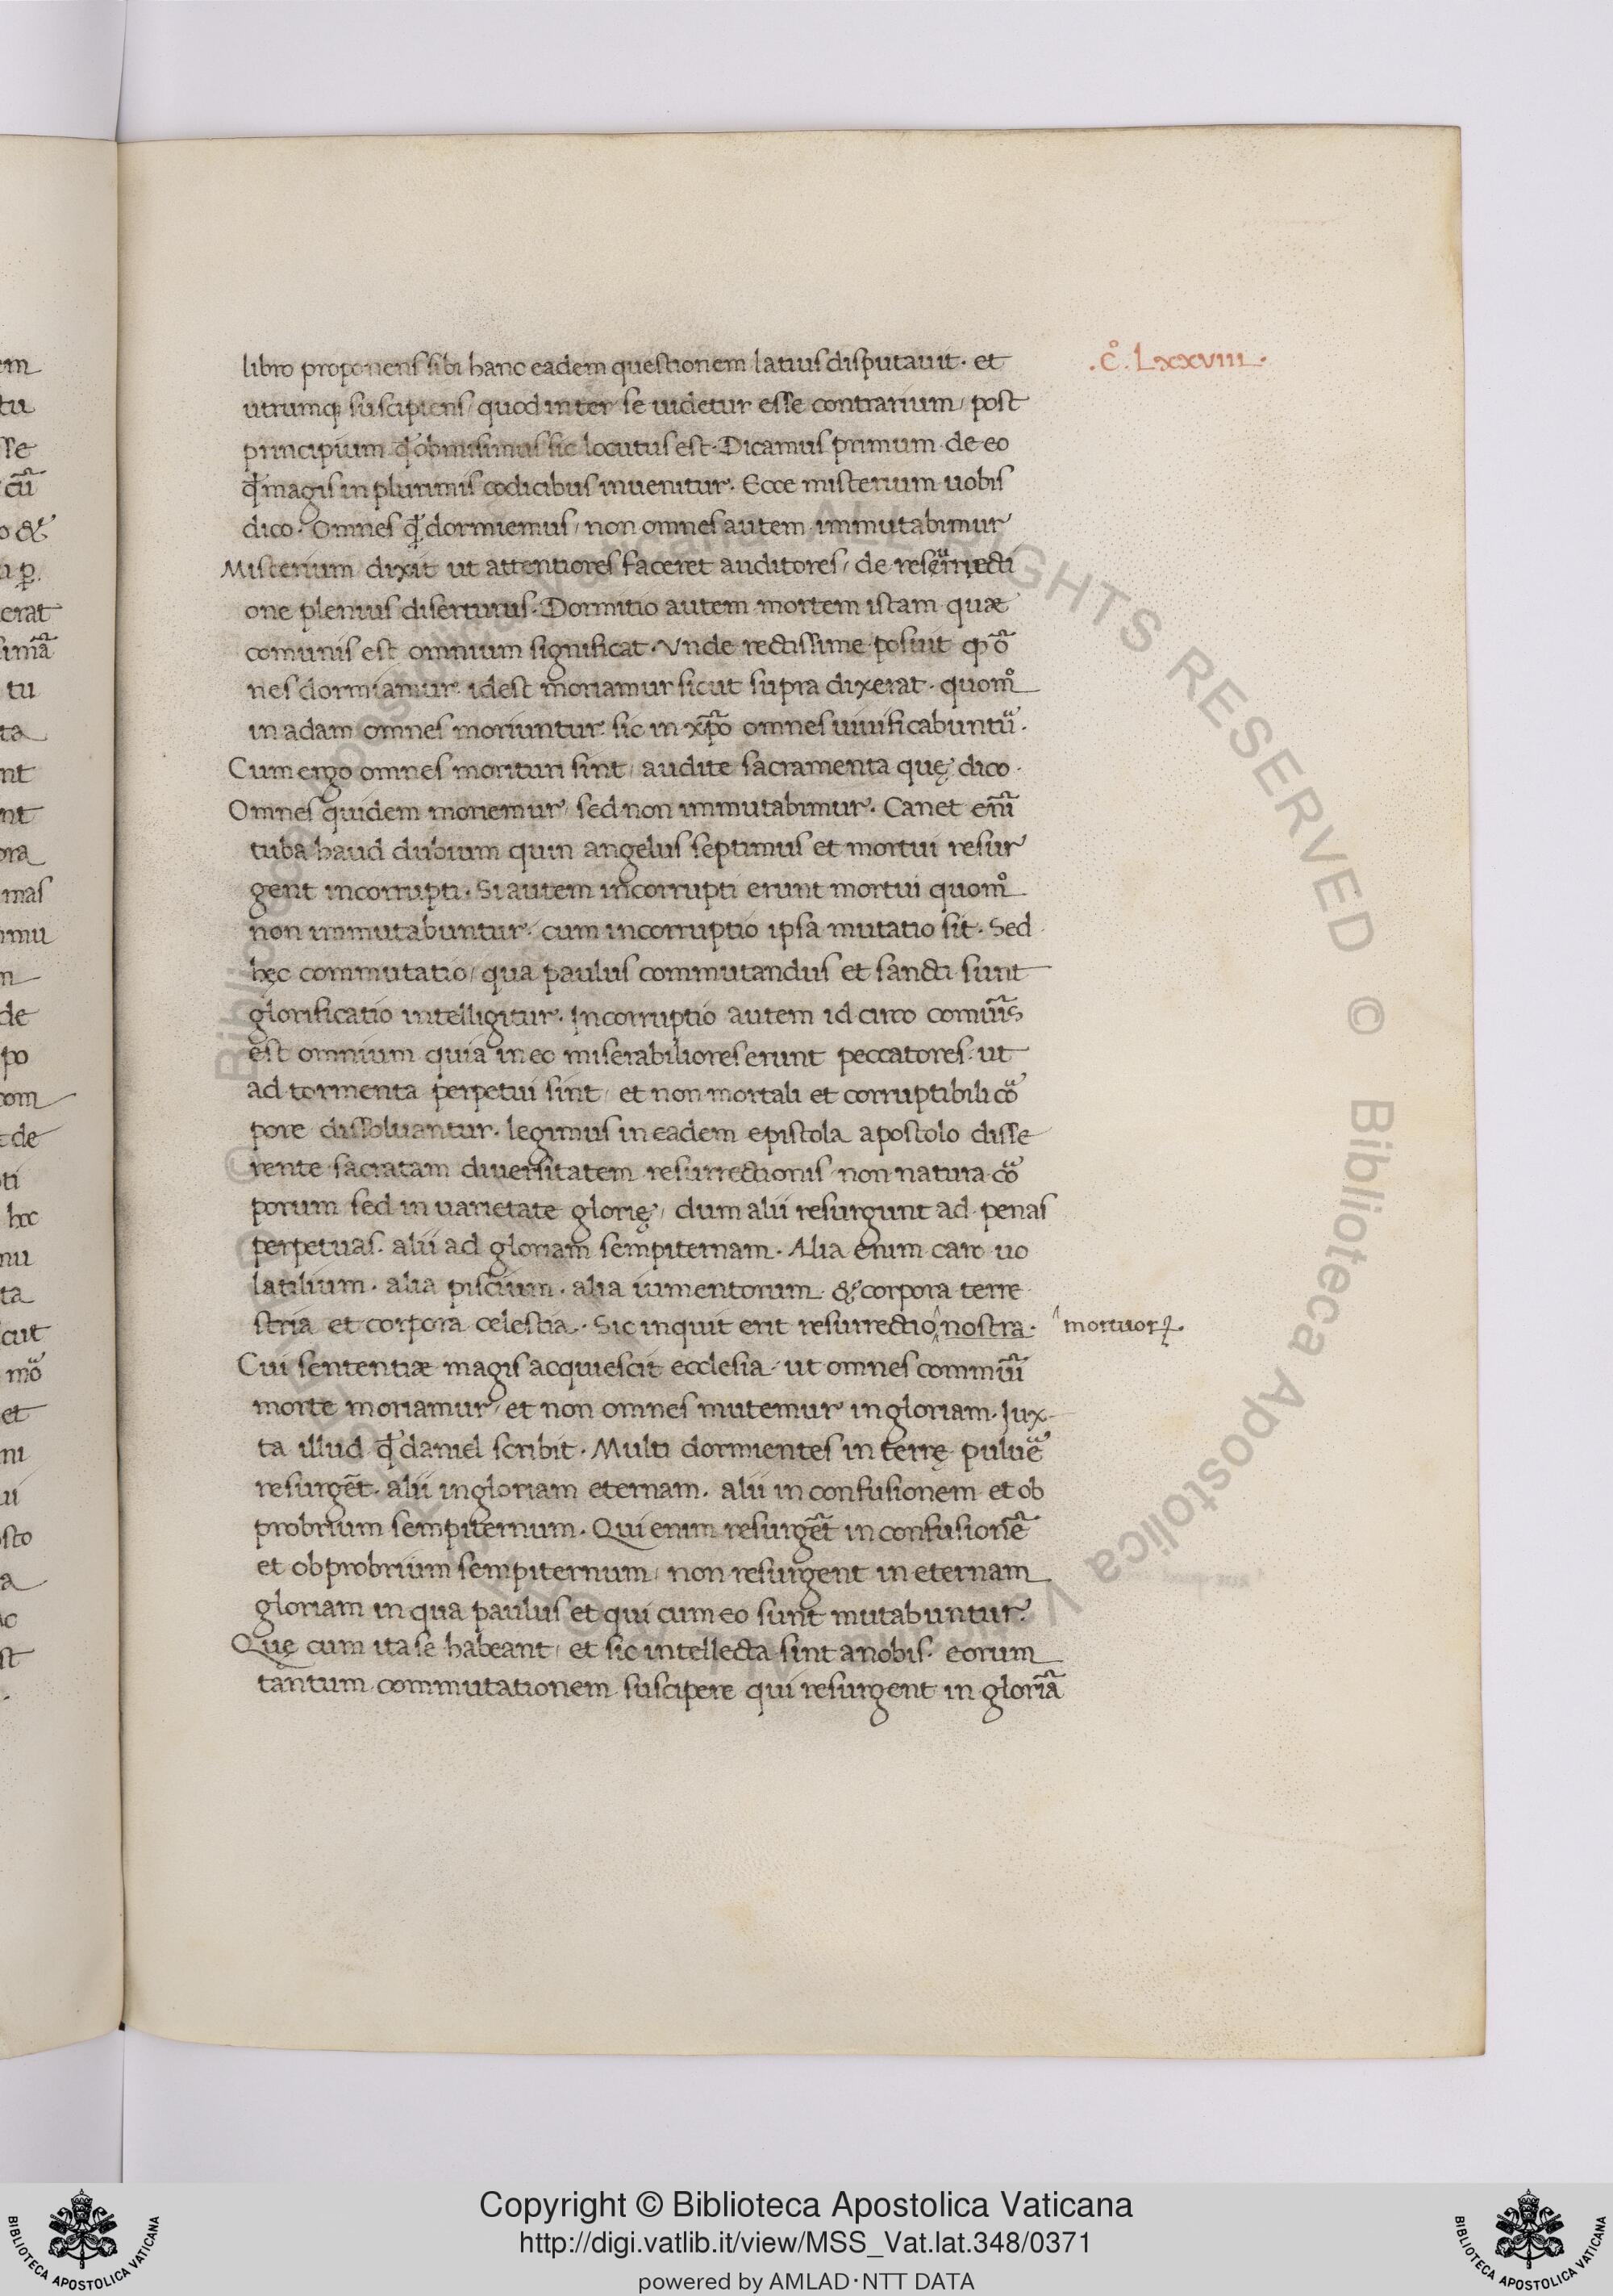 libro proponens sibi hanc eadem questionem latius disputauit · et
utrumq; suscipiens / quod inter se uidetur esse contrarium / post
principium qď obmisimus sic locutus est · Dicamus primum de eo
qď magis in plurimis codicibus inuenitur · Ecce misterium uobis
dico · Omnes qď dormiemus / non omnes autem immutabimur
Misterium dixit ut attentiores faceret auditores / de resurrecti
one plenius diserturus · Dormitio autem mortem istam quæ
comunis est omnium significat · Vnde rectissime posuit ꝙ õ
nes dormiamur · idest moriamur sicut supra dixerat · quom̊
in adam omnes moriuntur · sic in xp̃o omnes uiuificabuntũ ·
Cum ergo omnes morituri sint / audite sacramenta quę dico ·
Omnes quidem moriemur / sed non immutabimur · Canet enĩ
tuba haud dubium quin angelus septimus et mortui resur
gent incorrupti · Si autem incorrupti erunt mortui quom̊
non immutabuntur · cum incorruptio ipsa mutatio sit · Sed
hęc commutatio / qua paulus commutandus et sancti sunt
glorificatio intelligitur · Incorruptio autem id circo comũis
est omnium quia in eo miserabiliores erunt peccatores · ut
ad tormenta perpetui sint / et non mortali et corruptibili cõ
pore dissoluantur · legimus in eadem epistola apostolo disse
rente sacratam diuersitatem resurrectionis non natura cõ
porum sed in uarietate glorię / dum alii resurgunt ad penas
perpetuas · alii ad gloriam sempiternam · Alia enim caro uo
latilium · alia piscium · alia iumentorum · & corpora terre
stria et corpora celestia · Sic inquit erit resurrectio ^ nostra · ^ mortuoꝝ
Cui sententiæ magis acquiescit ecclesia / ut omnes commũi
morte moriamur / et non omnes mutemur in gloriam · Jux
ta illud qď daniel scribit · Multi dormientes in terrę puluẽ
resurgẽt · alii in gloriam eternam · alii in confusionem et ob
probrium sempiternum · Qui enim resurgẽt in confusionẽ
et obprobrium sempiternum / non resurgent in eternam
gloriam in qua paulus et qui cum eo sunt mutabuntur ·
Quę cum ita se habeant / et sic intellecta sint a nobis · eorum
tantum commutationem suscipere qui resurgent in gloriã
· c̊ · Lxxviii ·
Copyright © Biblioteca Apostolica Vaticana
http://digi.vatlib.it/view/MSS_Vat.lat.348/0371
powered by AMLAD·NTT DATA